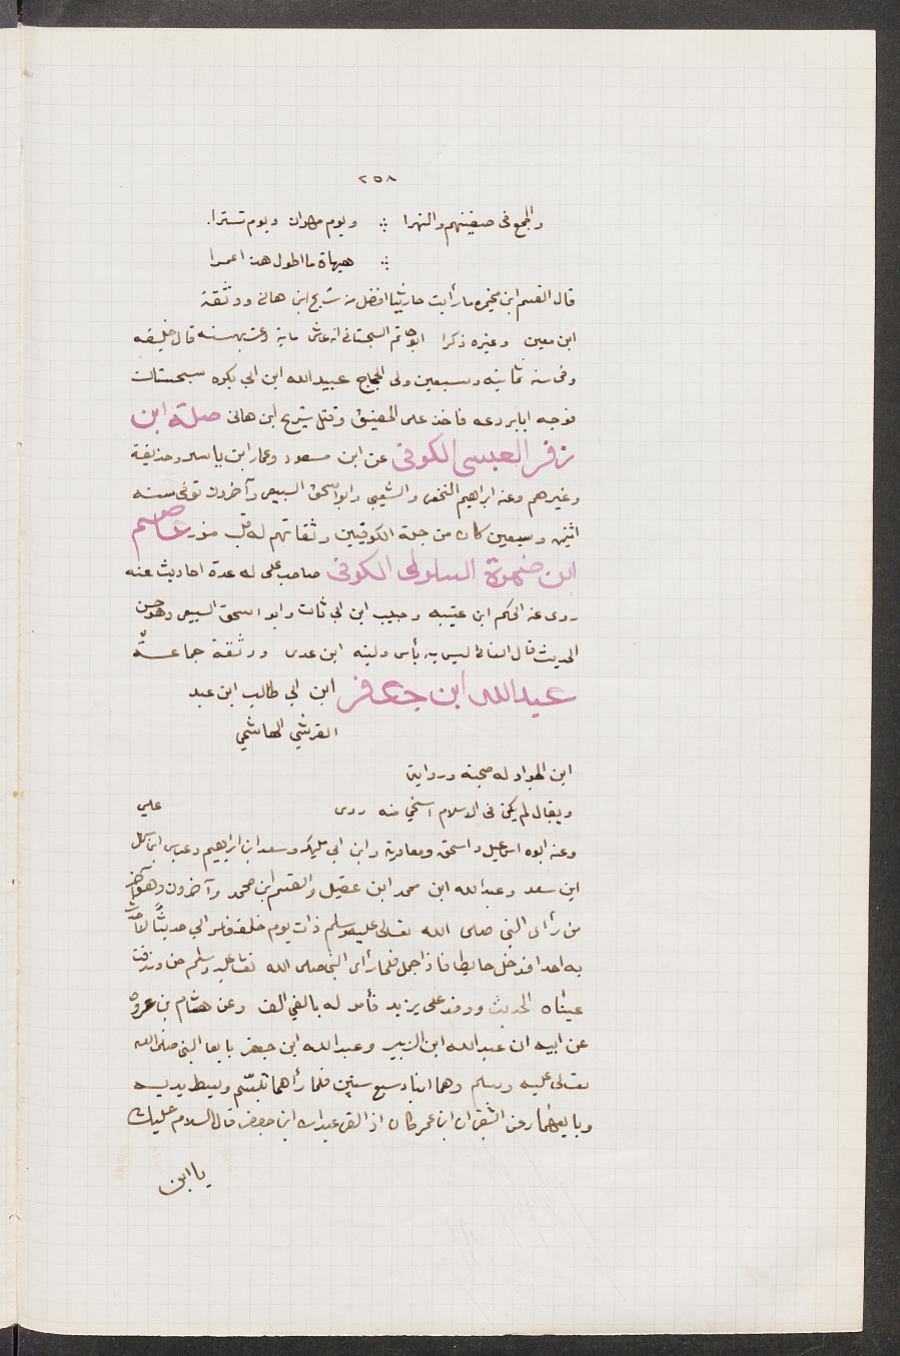 ٢٥٨
والجمع فى صفينهم والنهرا ∴ ويوم مهران ويوم تسترا.
∴ هيهاة ما اطول هذا عمرا
قال القسم ابن مخيمره ما رأيت حارثيا افضل من شريح ابن هانى ووثقة
ابن معين وغيره ذكرا ابو حاتم السجستانى انه عاش ماية وعشرين سنه قال خليفه
وفى سنه ثمانيه وسبعين ولى الحجاج عبيد الله ابن ابى بكره سجستان
فوجه ابا بردعه فاخذ على المضيق وقتل شريح ابن هانى صلة ابن
زفر العبسى الكوفى عن ابن مسعود وعمار ابن ياسر وحذيفة
وغيرهم وعنه ابراهيم النخعى والشعبى وابو اسحق السبيعى وآخرون توفى سنه
اثنين وسبعين كان من جلة الكوفيين وثقاتهم له قلب منور عاصم
ابن ضمرة السلولى الكوفى صاحب على له عدة احاديث عنه
روى عنه الحكم ابن عتيبه وحبيب ابن ابى ثابت وابو اسحق السبيعى وهو حسن
الحديث قال النسائى ليس به بأس ولينه ابن عدى ووثقة جماعة
عبد الله ابن جعفر ابن ابى طالب ابن عبد
القرشي الهاشمي
ابن الجواد له صحبة ورواية
ويقال لم يكن فى الاسلام اسخي منه روى علي
وعنه ابوه اسماعيل واسحق ومعاوية وابن ابى مليكه وسعد ابن ابراهيم وعباس ابن سهل
ابن سعد وعبد الله ابن محمد ابن عقيل والقسم ابن محمد وآخرون وهو آخر
من رأى النبى صلى الله تعالى عليه وسلم ذات يوم خلفه فاسر الي حديثًا لا احدث
به احدا فدخل حايطا فاذا جمل فلما رأى النبى صلى الله تعالى عليه وسلم حن وذرفت
عيناه الحديث ووفد على يزيد فأمر له بالفي الف وعن هشام بن عروه
عن ابيه ان عبد الله ابن الزبير وعبد الله ابن جعفر بايعا النبى صلى الله
تعالى عليه وسلم وهما ابنا سبع سنين فلما رأهما تبسّم وبسط يديه
وبايعهما وعن الشعبى ان ابن عمر كان اذا لقى عبد الله ابن جعفر قال السلام عليك
يا ابن